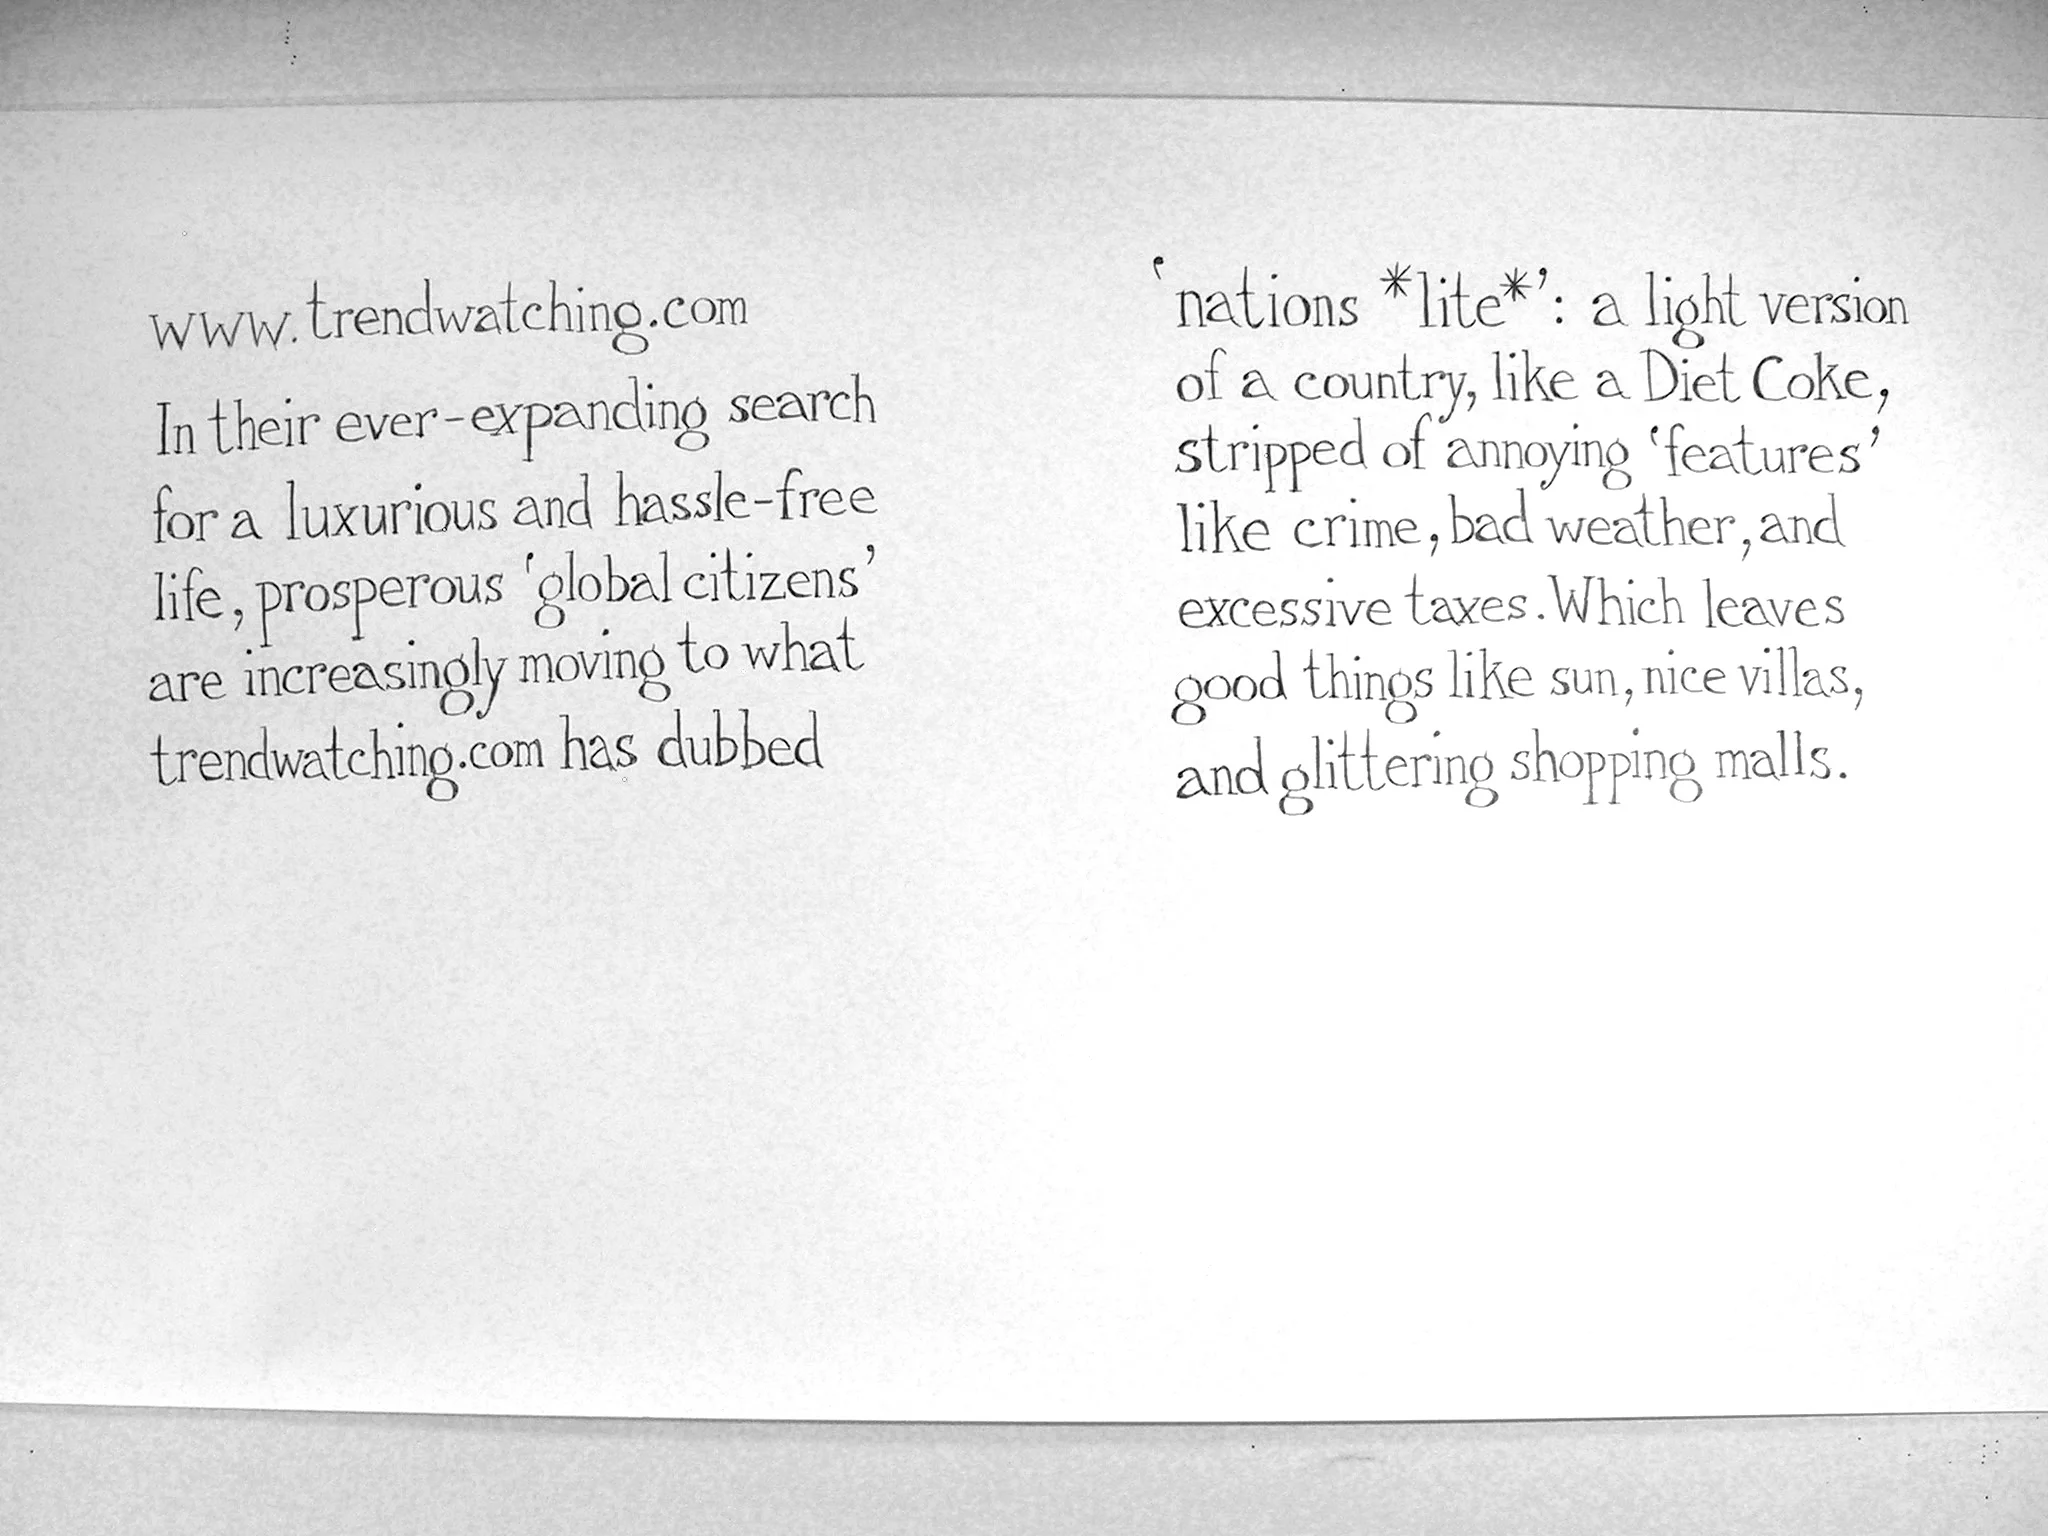 www.trendwatching.com
In their ever-expanding search
for a luxurious and hassle-free
life, prosperous ‘global citizens’
are increasingly moving to what
trendwatching.com has dubbed
‘nations *lite*’: a light version
of a country, like a Diet Coke,
stripped of annoying ‘features’
like crime, bad weather, and
excessive taxes. Which leaves
good things like sun, nice villas,
and glittering shopping malls.